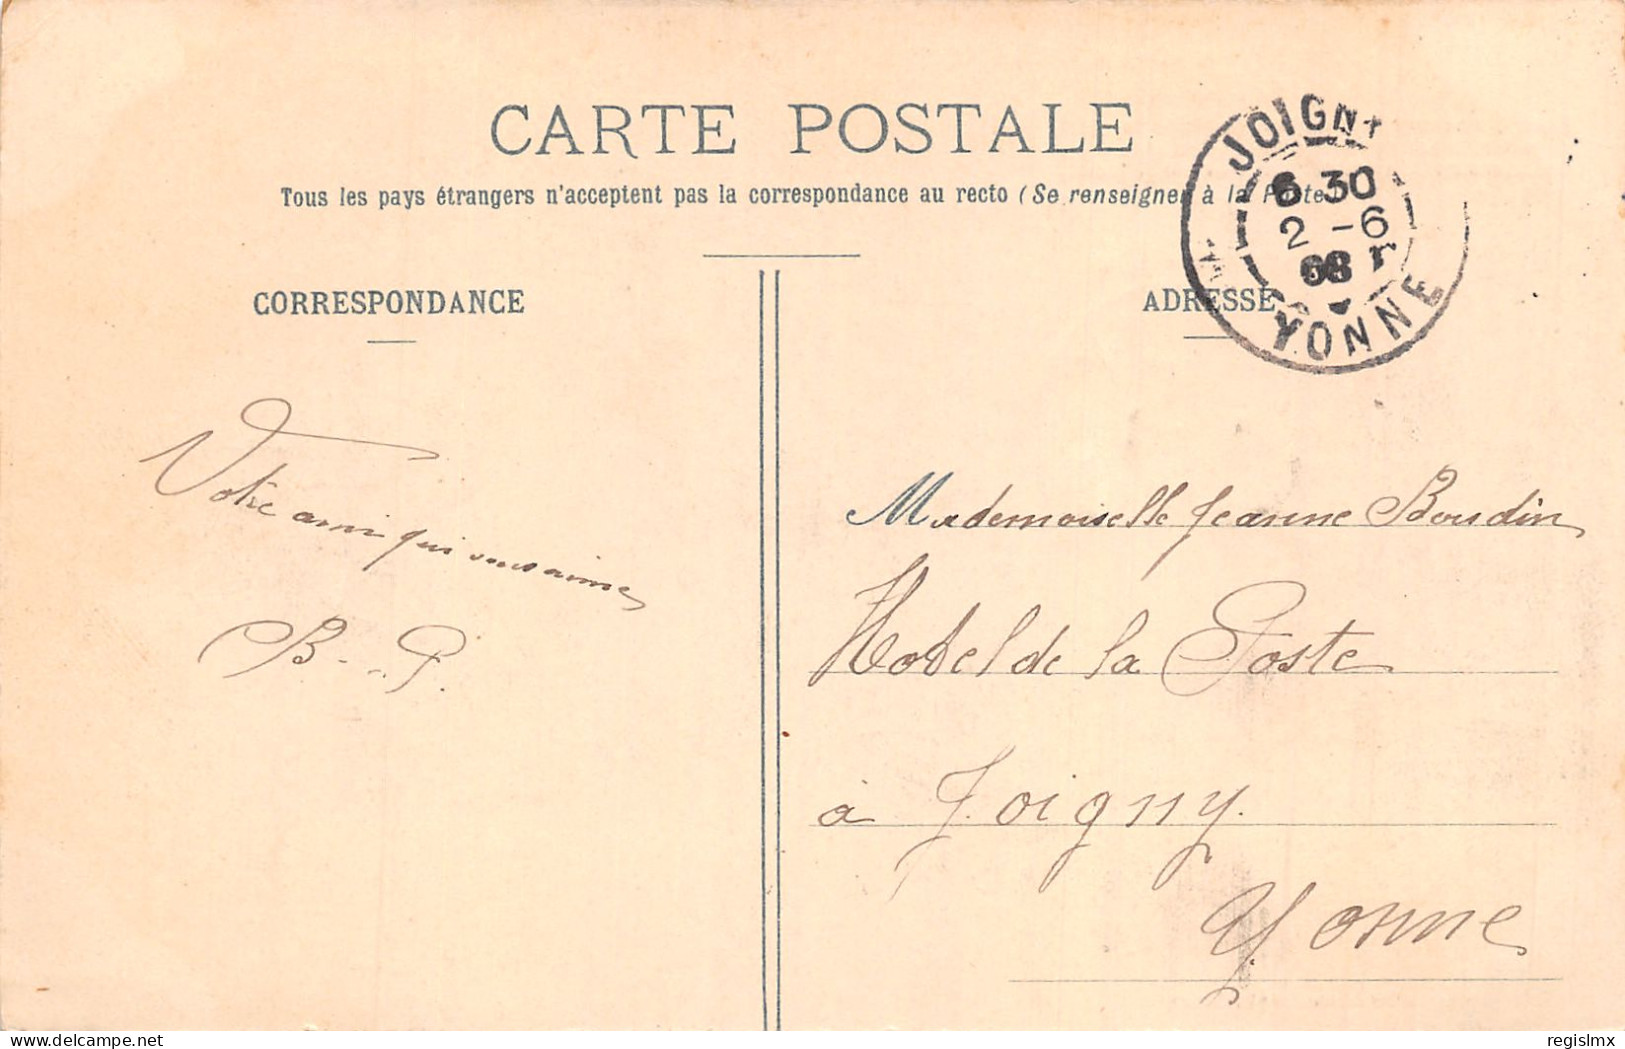 CARTE POSTALE
Tous les pays étrangers n'acceptent pas la correspondance au recto (Se renseigner à la Poste)
JOIGNY
6 30
2 - 6
08
YONNE
CORRESPONDANCE
ADRESSE
Votre ami qui vous aime
B. P.
Mademoiselle Jeanne Boudin
Hotel de la Poste
à Joigny.
Yonne
delcampe.net
regislmx